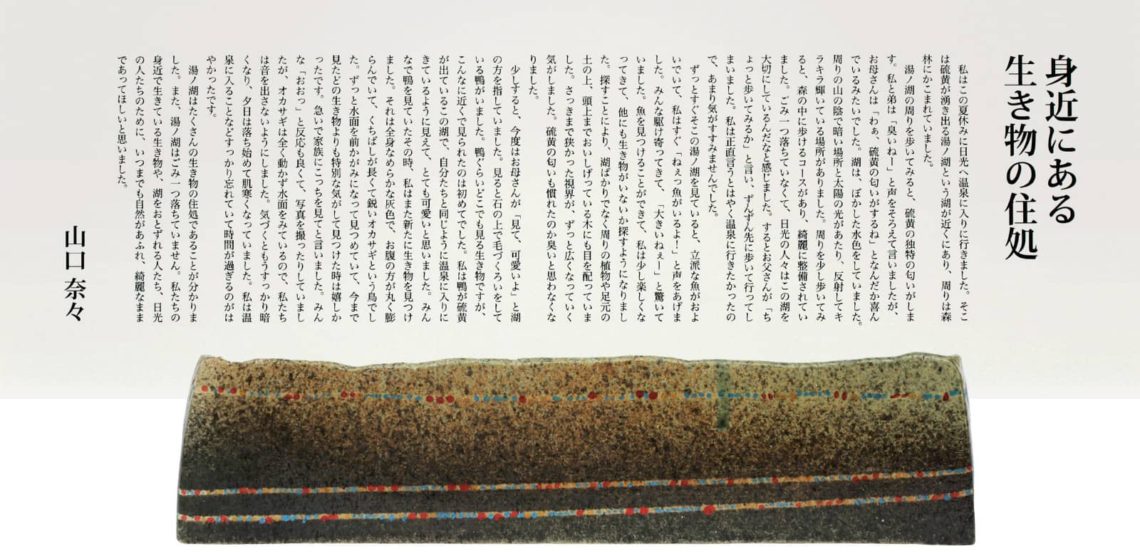 身近にある
生き物の住処
私はこの夏休みに日光へ温泉に入りに行きました。そこ
は硫黄が湧き出る湯ノ湖という湖が近くにあり、周りは森
林にかこまれていました。
湯ノ湖の周りを歩いてみると、硫黄の独特の匂いがしま
す。私と弟は「臭いねー」と声をそろえて言いましたが、
お母さんは「わぁ、硫黄の匂いがするね」となんだか喜ん
でいるみたいでした。湖は、ぼかした水色をしていました。
周りの山の陰で暗い場所と太陽の光があたり、反射してキ
ラキラ輝いている場所がありました。周りを少し歩いてみ
ると、森の中に歩けるコースがあり、綺麗に整備されてい
ました。ごみ一つ落ちていなくて、日光の人々はこの湖を
大切にしているんだなと感じました。するとお父さんが、「ち
ょっと歩いてみるか」と言い、ずんずん先に歩いて行ってし
まいました。私は正直言うとはやく温泉に行きたかったの
で、あまり気がすすみませんでした。
ずっとすぐそこの湯ノ湖を見ていると、立派な魚がおよ
いでいて、私はすぐ「ねぇっ魚がいるよ！」と声をあげま
した。みんな駆け寄ってきて、「大きいねぇー」と驚いて
いました。魚を見つけることができて、私は少し楽しくな
ってきて、他にも生き物がいないか探すようになりまし
た。探すことにより、湖ばかりでなく周りの植物や足元の
土の上、頭上までおいしげっている木にも目を配っていま
した。さっきまで狭かった視界が、ずっと広くなっていく
気がしました。硫黄の匂いも慣れたのか臭いと思わなくな
りました。
少しすると、今度はお母さんが「見て、可愛いよ」と湖
の方を指していました。見ると石の上で毛づくろいをして
いる鴨がいました。鴨ぐらいどこでも見る生き物ですが、
こんなに近くで見られたのは初めてでした。私は鴨が硫黄
が出ているこの湖で、自分たちと同じように温泉に入りに
きているように見えて、とても可愛いと思いました。みん
なで鴨を見ていたその時、私はまた新たに生き物を見つけ
ました。それは全身なめらかな灰色で、お腹の方が丸く膨
らんでいて、くちばしが長くて鋭いオカサギという鳥でし
た。ずっと水面を前かがみになって見つめていて、今まで
見たどの生き物よりも特別な気がして見つけた時は嬉しか
ったです。急いで家族にこっちを見てと言いました。みん
な「おおっ」と反応も良くて、写真を撮ったりしていまし
たが、オカサギは全く動かず水面をみているので、私たち
は音を出さないようにしました。気づくともうすっかり暗
くなり、夕日は落ち始めて肌寒くなっていました。私は温
泉に入ることなどすっかり忘れていて時間が過ぎるのがは
やかったです。
湯ノ湖はたくさんの生き物の住処であることが分かりま
した。また、湯ノ湖はごみ一つ落ちていません。私たちの
身近で生きている生き物や、湖をおとずれる人たち、日光
の人たちのために、いつまでも自然があふれ、綺麗なまま
であってほしいと思いました。
山口 奈々